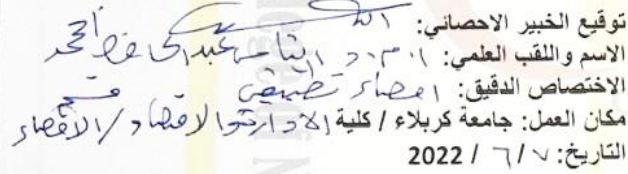 توقيع الخبير الاحصائي:
الاسم واللقب العلمي: ا.م.د إيناس عبد الحافظ محمد
الاختصاص الدقيق: احصاء تطبيقي
مكان العمل: جامعة كربلاء / كلية الادارة والاقتصاد / قسم الاحصاء
التاريخ: ٧ / ٦ / 2022